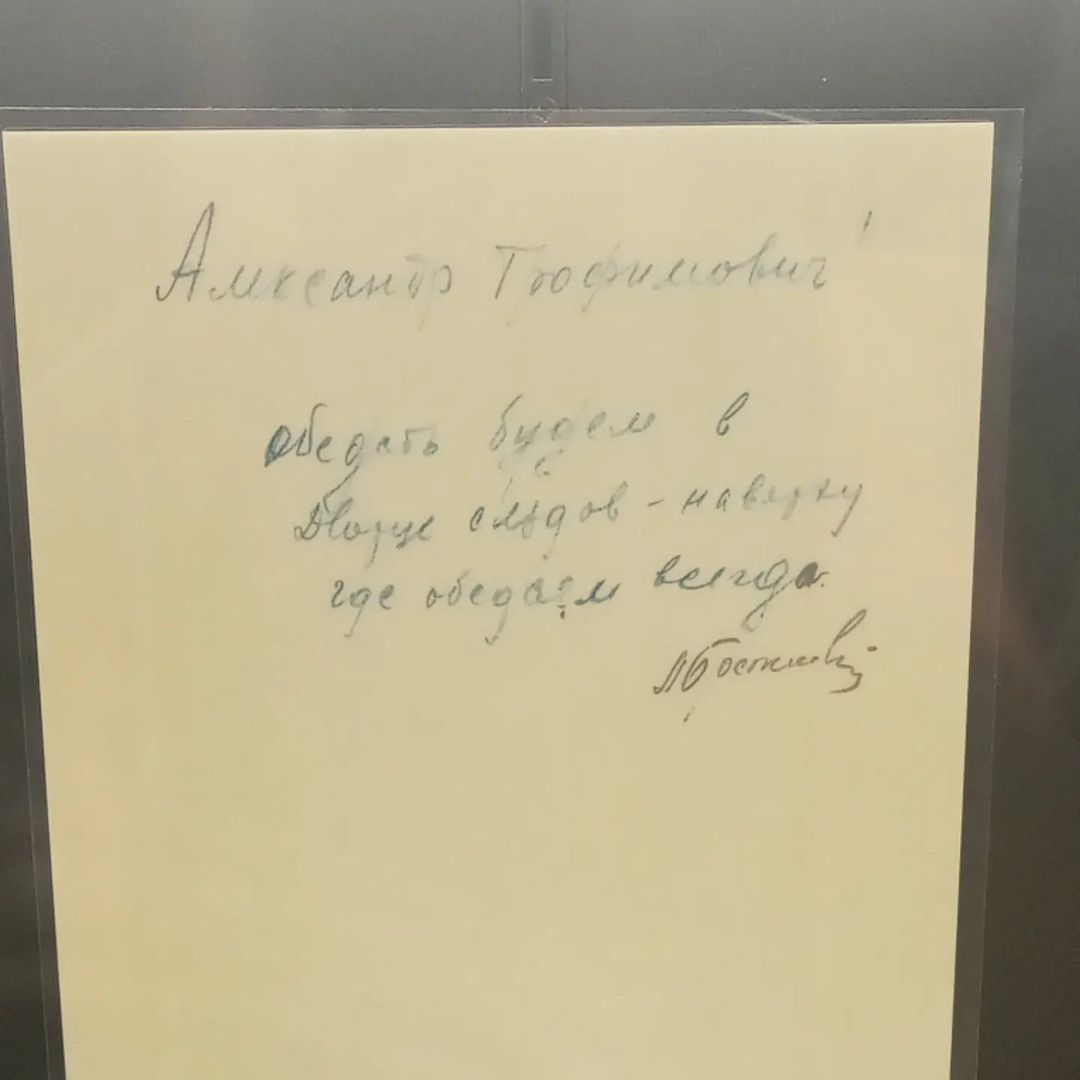 Александр Трофимович!
обедать будем в
Дворце съездов - наверху
где обедаем всегда.